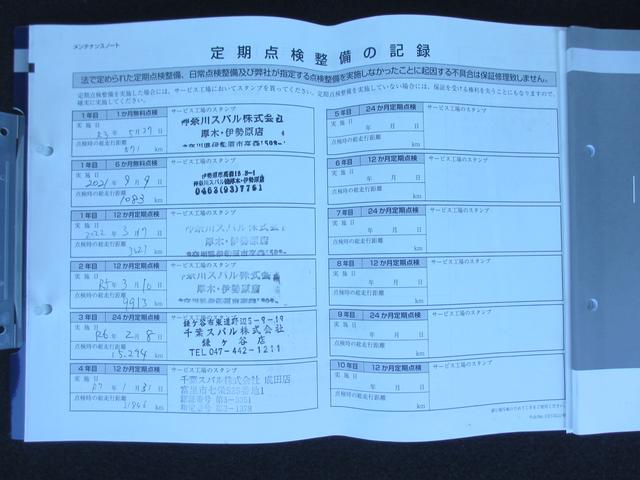 メンテナンスノート
定期点検整備の記録
法で定められた定期点検整備、日常点検整備及び弊社が指定する点検整備を実施しなかったことに起因する不具合は保証修理致しません。
定期点検整備を実施した場合には、サービス工場においてスタンプを貰ってください。定期点検整備を実施していない場合には、保証を受ける権利を失うことにもなりますので、
確実に実施してください。
1年目 1か月無料点検 サービス工場のスタンプ
実施日
R3年 5月27日
点検時の総走行距離
871 km
神奈川スバル株式会社
厚木・伊勢原店
1年目 6か月無料点検 サービス工場のスタンプ
実施日
2021年 9月 9日
点検時の総走行距離
1083 km
神奈川スバル㈱厚木・伊勢原店
0463(93)7761
1年目 12か月定期点検 サービス工場のスタンプ
実施日
2022年 3月 17日
点検時の総走行距離
3421 km
神奈川スバル株式会社
厚木・伊勢原店
2年目 12か月定期点検 サービス工場のスタンプ
実施日
R5年 3月10日
点検時の総走行距離
9913 km
神奈川スバル株式会社
厚木・伊勢原店
3年目 24か月定期点検 サービス工場のスタンプ
実施日
R6年 2月 8日
点検時の総走行距離
15,294 km
鎌ヶ谷市東道野辺5-9-19
千葉スバル株式会社
鎌ヶ谷店
TEL047-442-1211
4年目 12か月定期点検 サービス工場のスタンプ
実施日
R7年 1月31日
点検時の総走行距離
km
千葉スバル株式会社 成田店
富里市七栄525番地1
認証番号 第3-3351
指定番号 第3-1378
5年目 24か月定期点検 サービス工場のスタンプ
実施日
年 月 日
点検時の総走行距離
km
6年目 12か月定期点検 サービス工場のスタンプ
実施日
年 月 日
点検時の総走行距離
km
7年目 24か月定期点検 サービス工場のスタンプ
実施日
年 月 日
点検時の総走行距離
km
8年目 12か月定期点検 サービス工場のスタンプ
実施日
年 月 日
点検時の総走行距離
km
9年目 24か月定期点検 サービス工場のスタンプ
実施日
年 月 日
点検時の総走行距離
km
10年目 12か月定期点検 サービス工場のスタンプ
実施日
年 月 日
点検時の総走行距離
km